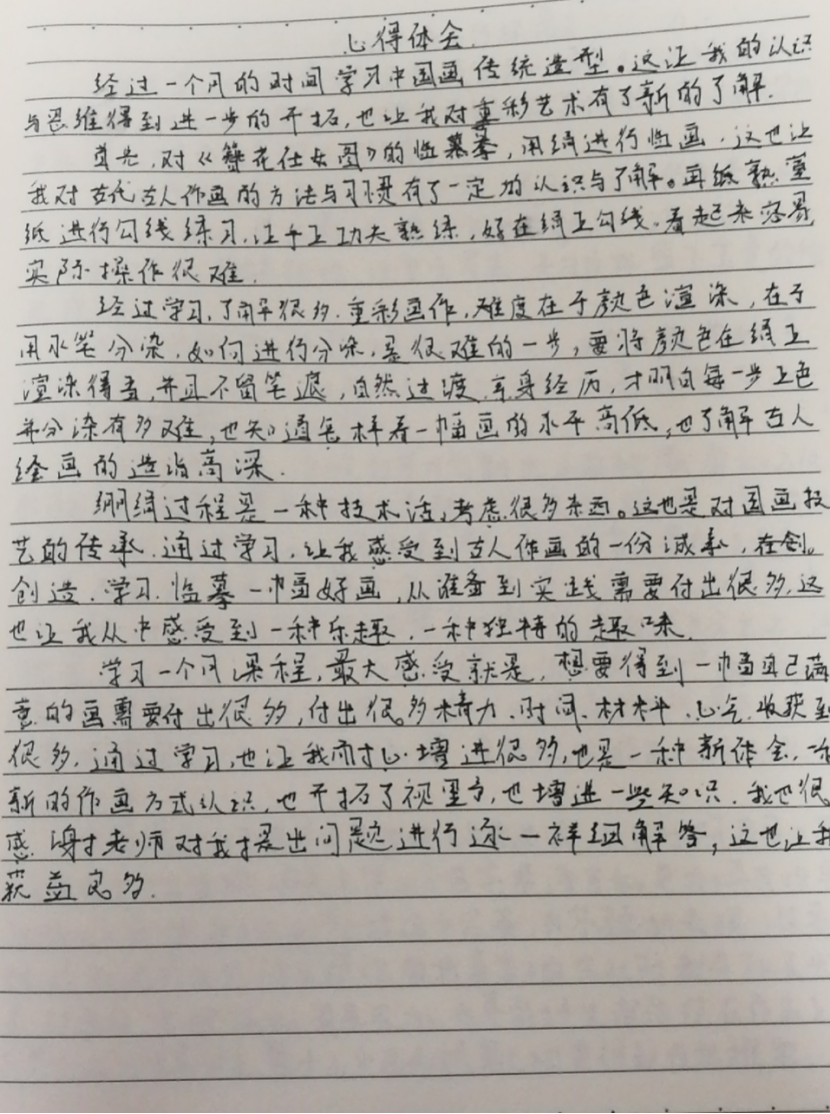 心得体会
经过一个月的时间学习中国画传统造型。这让我的认识
与思维得到进一步的开拓,也让我对重彩艺术有了新的了解.
首先,对《簪花仕女图》的临摹,用绢进行临画,这也让
我对古代古人作画的方法与习惯有了一定的认识与了解。再纸熟宣
纸进行勾线练习,让手上功夫熟练,好在绢上勾线.看起来容易
实际操作很难.
经过学习,了解很多.重彩画作,难度在于颜色渲染,在于
用水笔分染,如何进行分染,是很难的一步,要将颜色在绢上
渲染得当,并且不留笔痕,自然过渡.亲身经历,才明白每一步上色
并分染有多难,也知道怎样看一幅画的水平高低,也了解古人
绘画的造诣高深.
绷绢过程是一种技术活,考虑很多东西。这也是对国画技
艺的传承.通过学习,让我感受到古人作画的一份诚承,在创。
创造.学习.临摹一幅好画,从准备到实践需要付出很多,这
也让我从中感受到一种乐趣,一种独特的趣味.
学习一个月课程,最大感受就是,想要得到一幅自己满
意的画需要付出很多,付出很多精力.时间.材料.心气.收获到
很多,通过学习,也让我耐心增进很多,也是一种新体会.
新的作画方式认识,也开拓了视野,也增进一些知识.我也很
感谢老师对我提出问题进行逐一祥细解答,这也让我
获益良多.